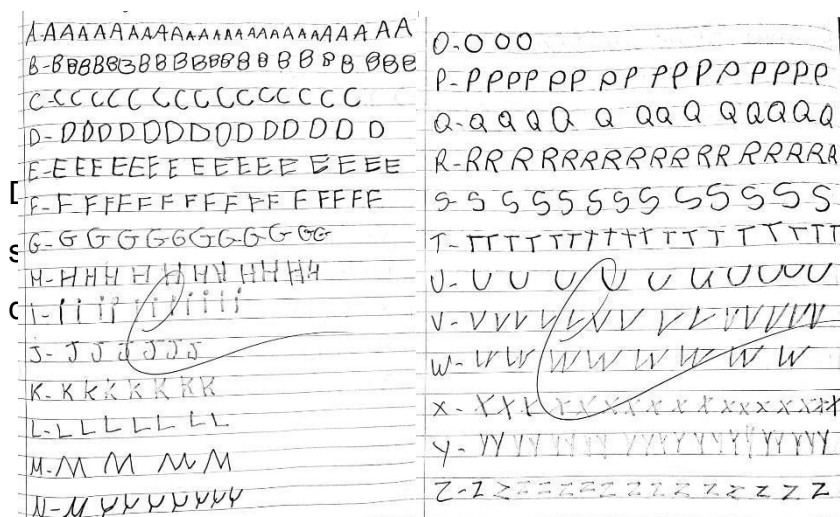 A-AAAAAAAAAAAAAAAAAAAAAAAA
B-BBBBBBBBBBBBBBBBBBBBB
C-CCCCCCCCCCCCCC
D-DDDDDDDDDDDDDD
E-EEEEEEEEEEEEEEE
F-FFFFFFFFFFFFFFFF
G-GGGGGGGGGGG
H-HHHHHHHHHH
I-iiiiiiiiii
J-JJJJJJ
K-KKKKKKK
L-LLLLLL
M-MMMM
O-OOO
P-PPPPPPPPPPPPPPP
Q-QQQQQQQQQQQQQ
R-RRRRRRRRRRRRRRRR
S-SSSSSSSSSSSSS
T-TTTTTTttttTTTTTTTT
U-UUUUUUUUUU
V-VVVVVVVVVVVVVV
W-WWWWWWWW
X-XXXXXXXXXXXXXXXX
Y-YYYYYYYYYYYYYYYYY
Z-ZZZZZZZZZZZZZZ